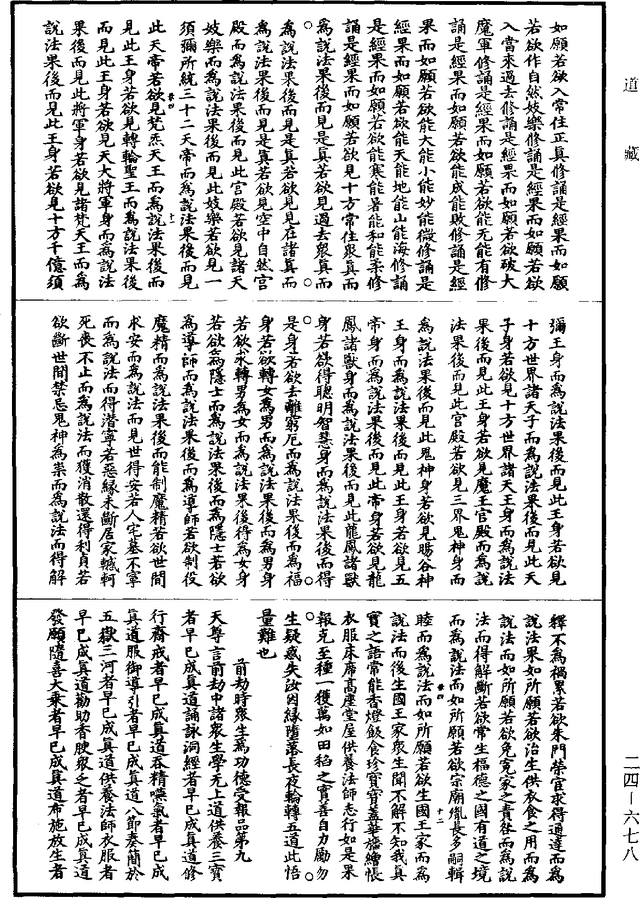 道藏
如願若欲入常住正真修誦是經果而如願
若欲作自然妓樂修誦是經果而如願若欲
入當來過去修誦是經果而如願若欲破大
魔軍修誦是經果而如願若欲能无能有修
誦是經果而如願若欲能成能敗修誦是經
果而如願若欲能大能小能妙能微修誦是
經果而如願若欲能天能地能山能海修誦
是經果而如願若欲能寒能暑能和能柔修
誦是經果而如願若欲見十方常住衆真而
為說法果後而見是真若欲見過去衆真而
為說法果後而見是真若欲見見在諸真而
為說法果後而見是真若欲見空中自然宫
殿而為說法果後而見此宫殿若欲見諸天
妓樂而為說法果後而見此妓樂若欲見一
須彌所統三十二天帝而為說法果後而見
此天帝若欲見梵炁天王而為說法果後而
見此王身若欲見轉輪聖王而為說法果後
而見此王身若欲見天大將軍身而為說法
果後而見此將軍身若欲見諸梵天王而為
說法果後而見此王身若欲見十方千億須
彌王身而為說法果後而見此王身若欲見
十方世界諸天子而為說法果後而見此天
子身若欲見十方世界諸天王身而為說法
果後而見此王身若欲見魔王官殿而為說
法果後而見此宫殿若欲見三界鬼神身而
為說法果後而見此鬼神身若欲見暘谷神
王身而為說法果後而見此王身若欲見五
帝身而為說法果後而見此帝身若欲見龍
鳳諸獸身而為說法果後而見此龍鳳諸獸
身若欲得聰明智慧身而為說法果後而得
是身若欲去離窮厄而為說法果後而為福
身若欲轉女為男而為說法果後而為男身
若欲求轉男為女而為說法果後得為女身
若欲為隱士而為說法果後而為隱士若欲
為導師而為說法果後而為導師若欲制伇
魔精而為說法果後而能制魔精若欲世間
求安而為說法而見世得安若人宅墓不寧
而為說法而得潜寧若惡縁未斷居家轗軻
死喪不止而為說法而獲消散還得利貞若
欲斷世間禁忌鬼神為祟而為說法而得解
釋不為禍累若欲朱門榮官求得通達而為
說法果如所願若欲治生供衣食之用而為
說法而如所願若欲免冤家之責徃而為說
法而得解斷若欲常生福德之國有道之境
而為說法而如所願若欲宗廟胤長多嗣輯
睦而為說法而如所願若欲生國王家而為
說法而後生國王家衆生聞不解不知我真
實之語常能香燈飯食珍寳寳蓋華旛繒帳
衣服床席高座堂屋供養法師志行如是果
報克至種一獲萬如田稻之實善自力勵勿
生疑惑失汝因縁墮落長夜輪轉五道此悟
量難也
前劫時衆生為功德受報品第九
天尊言前劫中諸衆生學无上道供養三寳
者早已成真道誦詠洞經者早已成真道修
行齋戒者早已成真道吞精嚥氣者早已成
真道服御導引者早已成真道八節奏簡於
五嶽三河者早已成真道供養法師衣服者
早已成真道勸助香腴衆乏者早已成真道
發願隨喜大乗者早已成真道布施放生者
二四—六七八